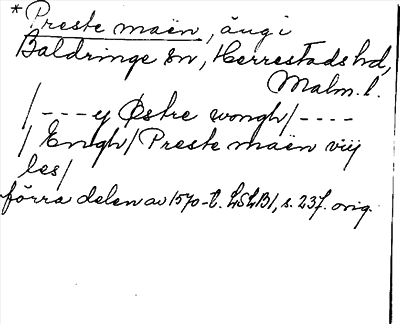 * Preste maën, äng i
Baldringe sn, Herrestads hd,
Malm. l.
/---- ey Østre wongh/----
/ Engh/ Preste maën viij
les/
förra delen av 1570-t. LSLB1, s. 237. orig.